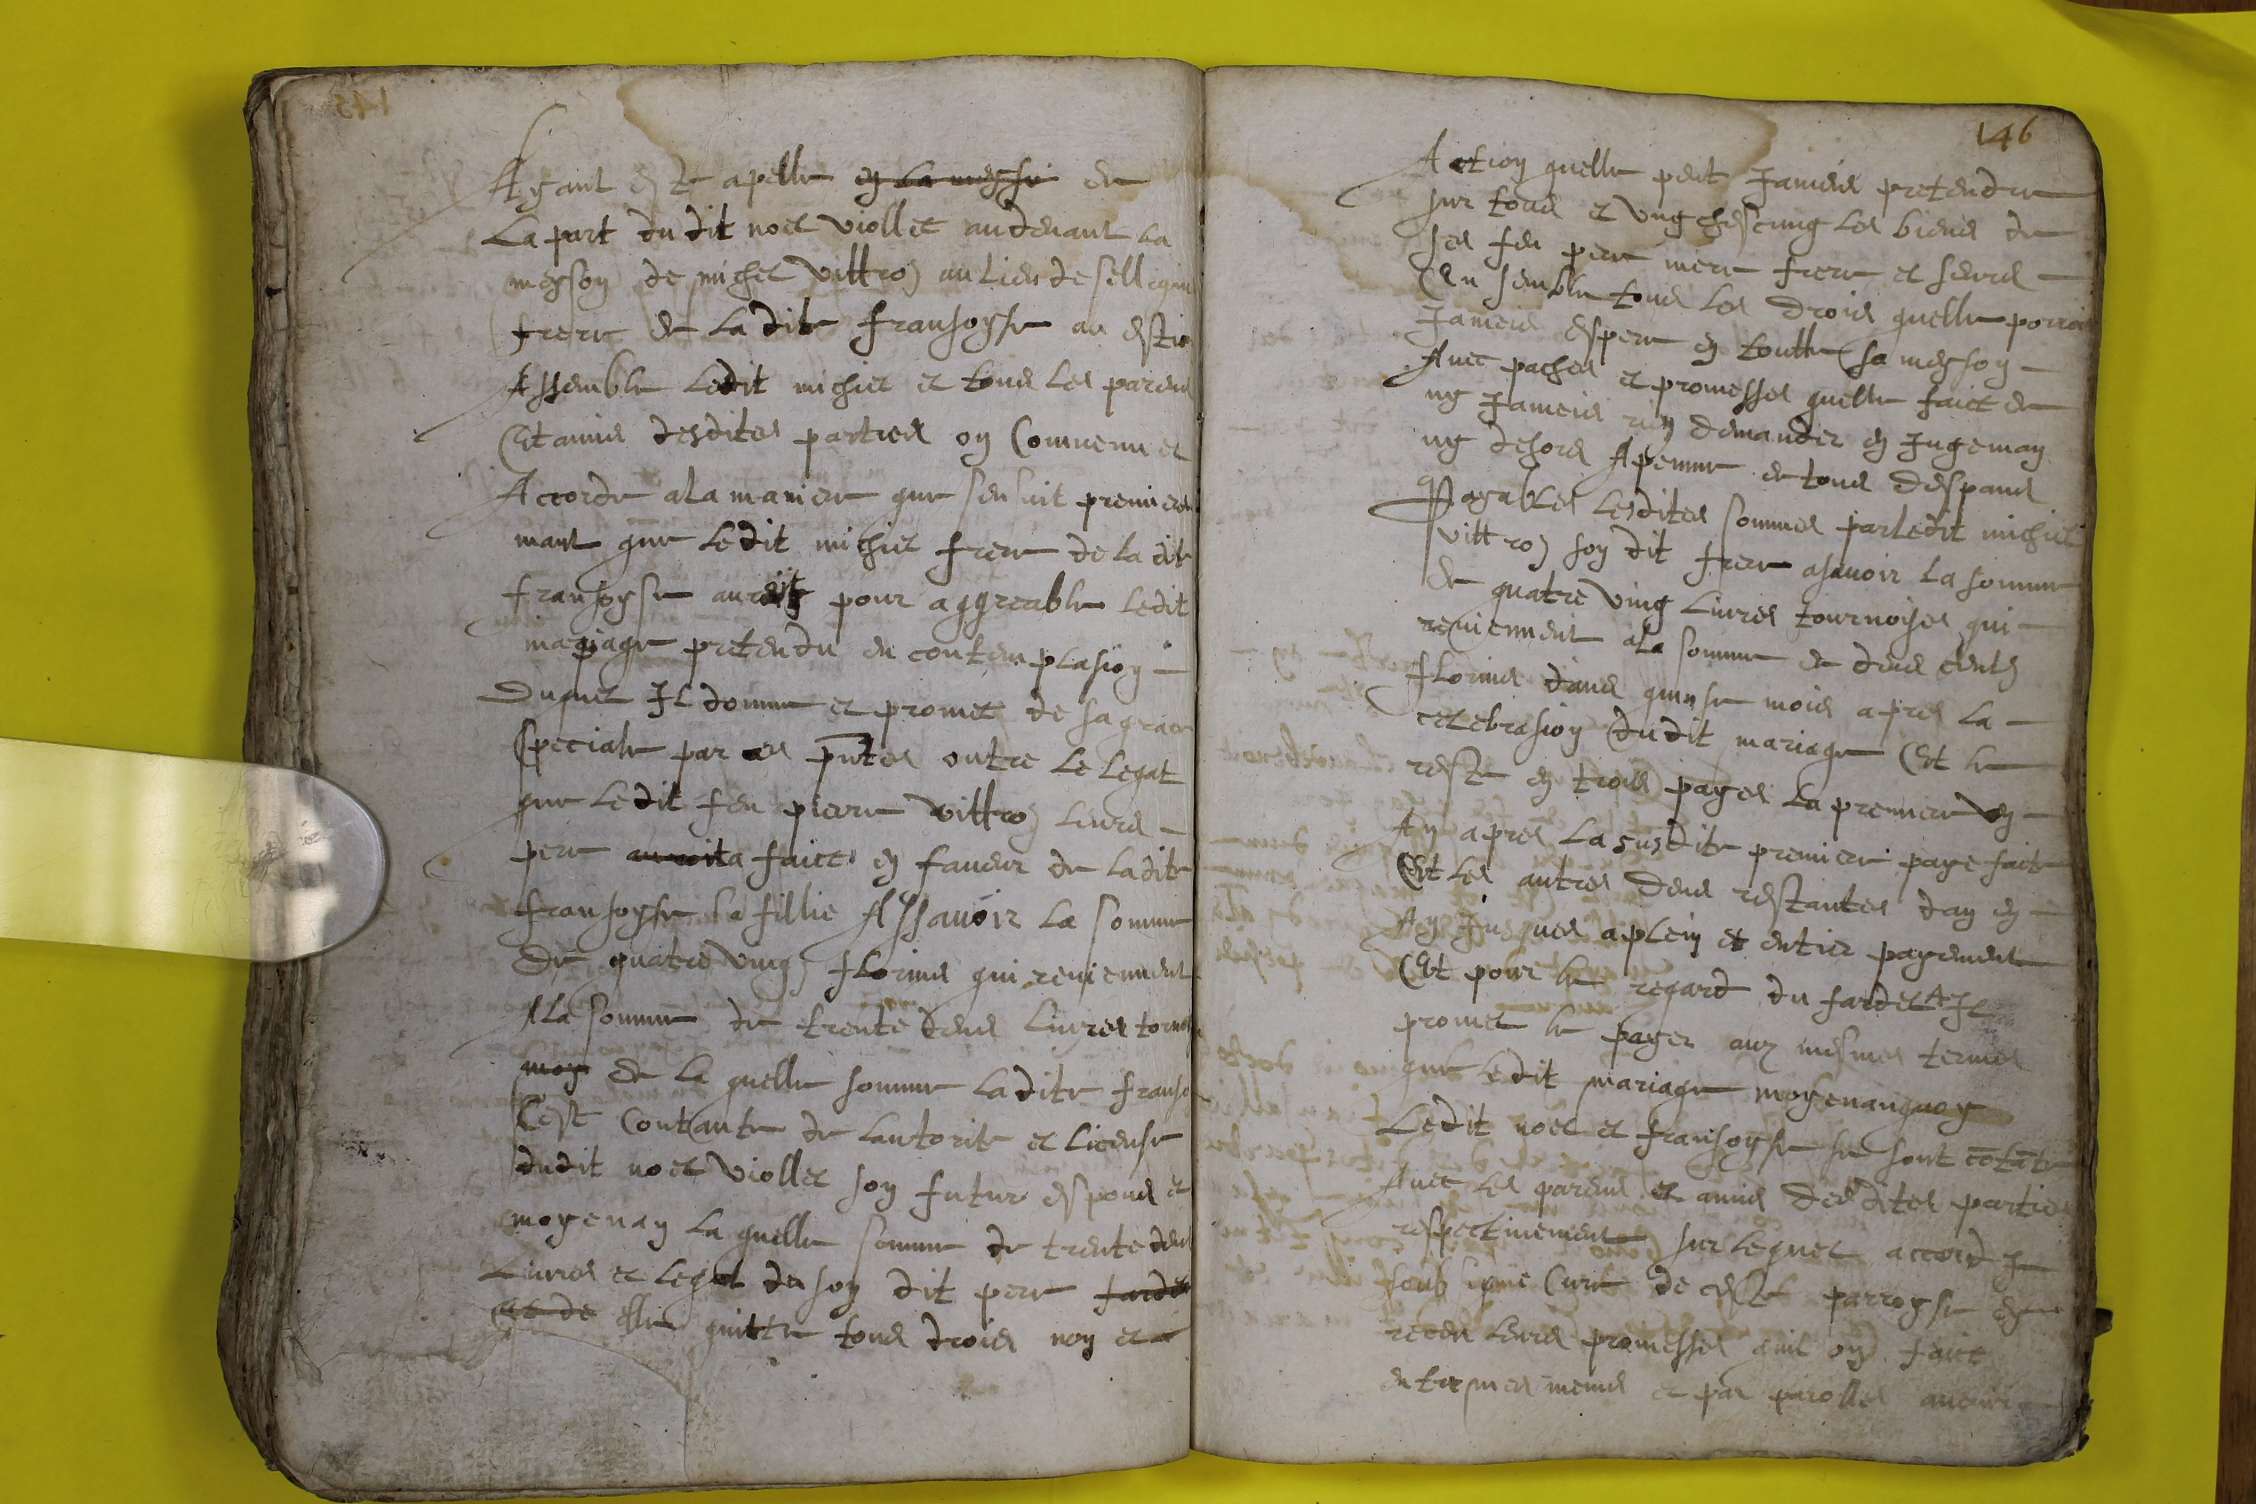 145
Ayant este apelle en la meyson de
La part du dit noel viollet audevant la
meyson de michel vittoz au lieu de
frere de La dite fransoyse au
Assemble Ledit michiel et tous les parens
Et amis desdites parties on Convenu et
Accorde a la maniere que sen suit premiere
mant que Ledit michiel frere de la dite
fransoyse pour aggreable Ledit
mariage pretendu en contemplasion
Duquel Il donne et promet de sa grace
Speciale par ces pntes outre le legat
que Ledit feu pierre vittoz leurs
pere auroit a faict en faveur de Ladite
fransoyse sa fillie Assavoir la somme
De quatre ving florins qui reviennent
A La somme de trente deus Livres torno
moy de la quelle somme Ladite franso
Cest Contante de lautorite et license
dudit noel viollet son futur espous et
moyenan la quelle somme de trente deus
Livres et legat de son dit pere fardel
elle quitte tous drois non et
146
Action quelle peut Jameis pretendre
sur tous et ung chescung les biens de
ses feu pere mere frere et seurs
En semble tous les drois quelle porroit
Jameis espere en toutte sa meyson
Avec paches et promesses quelle faict de
ny Jameis rien demander en Jugeman
ny dehors A penne de tous despans
Payables lesdites sommes par Ledit michiel
vittoz son dit frere asavoir La somme
de quatre ving Livres tournoyses qui
reviennent a La somme de deus cents
florins dans quinse mois apres la
celebrasion du dit mariage Et le
reste en trois payes La premiere en
An apres La susdite premiere paye faite
Et les autres deus restantes dan en
An Jusques a plein et entier payement
Et pour le regard du fardel Il
promet le payer aux mesmes termes
que Ledit mariage moyenanquoy
Ledit noel et fransoyse se sont cotate
Avec les parens et amis desdites parties
respectivement sur lequel accord Je
soub signe Cure de ceste parroysse
receu leurs promesses quil on faict
en termes et par parolles